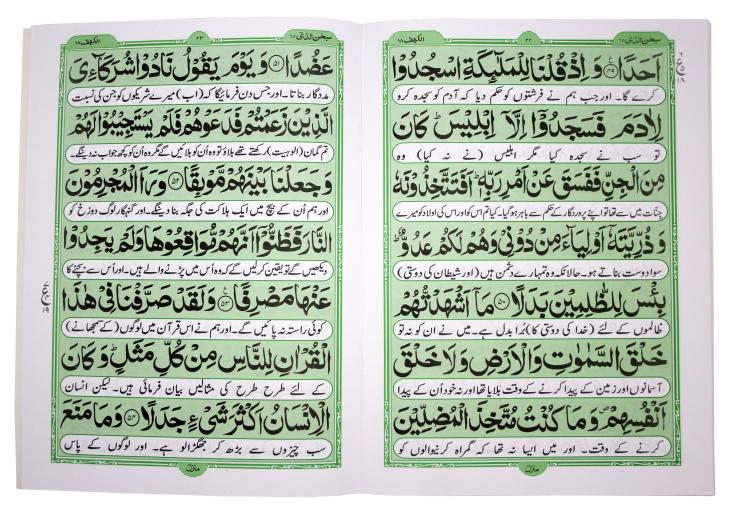 سبحن الذی ۱۵
۲۲
الکھف ۱۸
اَحَدًا ۟ وَ اِذْ قُلْنَا لِلْمَلٰٓئِكَةِ اسْجُدُوْا
کرے گا۔ اور جب ہم نے فرشتوں کو حکم دیا کہ آدم کو سجدہ کرو
لِاٰدَمَ فَسَجَدُوْۤا اِلَّاۤ اِبْلِیْسَ ؕ كَانَ
تو سب نے سجدہ کیا مگر ابلیس (نے نہ کیا) وہ
مِنَ الْجِنِّ فَفَسَقَ عَنْ اَمْرِ رَبِّهٖ ؕ اَفَتَتَّخِذُوْنَهٗ
جنات میں سے تھا تو اپنے پروردگار کے حکم سے باہر ہو گیا۔ کیا تم اس کو اور اس کی اولاد کو میرے
وَ ذُرِّیَّتَهٗۤ اَوْلِیَآءَ مِنْ دُوْنِیْ وَ هُمْ لَكُمْ عَدُوٌّ ؕ
سوا دوست بناتے ہو۔ حالانکہ وہ تمہارے دشمن ہیں (اور شیطان کی دوستی)
بِئْسَ لِلظّٰلِمِیْنَ بَدَلًا ۵۰ مَاۤ اَشْهَدْتُّهُمْ
ظالموں کے لئے (خدا کی دوستی کا) بُرا بدل ہے۔ میں نے ان کو نہ تو
خَلْقَ السَّمٰوٰتِ وَ الْاَرْضِ وَ لَا خَلْقَ
آسمانوں اور زمین کے پیدا کرنے کے وقت بلایا تھا اور نہ خود اُن کے پیدا
اَنْفُسِهِمْ ۪ وَ مَا كُنْتُ مُتَّخِذَ الْمُضِلِّیْنَ
کرنے کے وقت۔ اور میں ایسا نہ تھا کہ گمراہ کرنیوالوں کو
منزل
سبحن الذی ۱۵
۲۳
الکھف ۱۸
عَضُدًا ۵۱ وَ یَوْمَ یَقُوْلُ نَادُوْا شُرَكَآءِیَ
مددگار بناتا۔ اور جس دن فرمائیگا کہ (اب) میرے شریکوں کو جن کی نسبت
الَّذِیْنَ زَعَمْتُمْ فَدَعَوْهُمْ فَلَمْ یَسْتَجِیْبُوْا لَهُمْ
تم گمان (الوہیت) رکھتے تھے بلاؤ تو وہ اُن کو بلائیں گے مگر وہ اُن کو کچھ جواب نہ دینگے۔
وَ جَعَلْنَا بَیْنَهُمْ مَّوْبِقًا ۵۲ وَ رَاَ الْمُجْرِمُوْنَ
اور ہم اُن کے بیچ میں ایک ہلاکت کی جگہ بنا دینگے۔ اور گنہگار لوگ دوزخ کو
النَّارَ فَظَنُّوْۤا اَنَّهُمْ مُّوَاقِعُوْهَا وَ لَمْ یَجِدُوْا
دیکھیں گے تو یقین کر لیں گے کہ وہ اُس میں پڑنے والے ہیں۔ اور اُس سے بچنے کا
عَنْهَا مَصْرِفًا ۵۳ وَ لَقَدْ صَرَّفْنَا فِیْ هٰذَا
کوئی راستہ نہ پائیں گے۔ اور ہم نے اس قرآن میں لوگوں (کے سمجھانے)
الْقُرْاٰنِ لِلنَّاسِ مِنْ كُلِّ مَثَلٍ ؕ وَ كَانَ
کے لئے طرح طرح کی مثالیں بیان فرمائی ہیں۔ لیکن انسان
الْاِنْسَانُ اَكْثَرَ شَیْءٍ جَدَلًا ۵۴ وَ مَا مَنَعَ
سب چیزوں سے بڑھ کر جھگڑالو ہے۔ اور لوگوں کے پاس
منزل